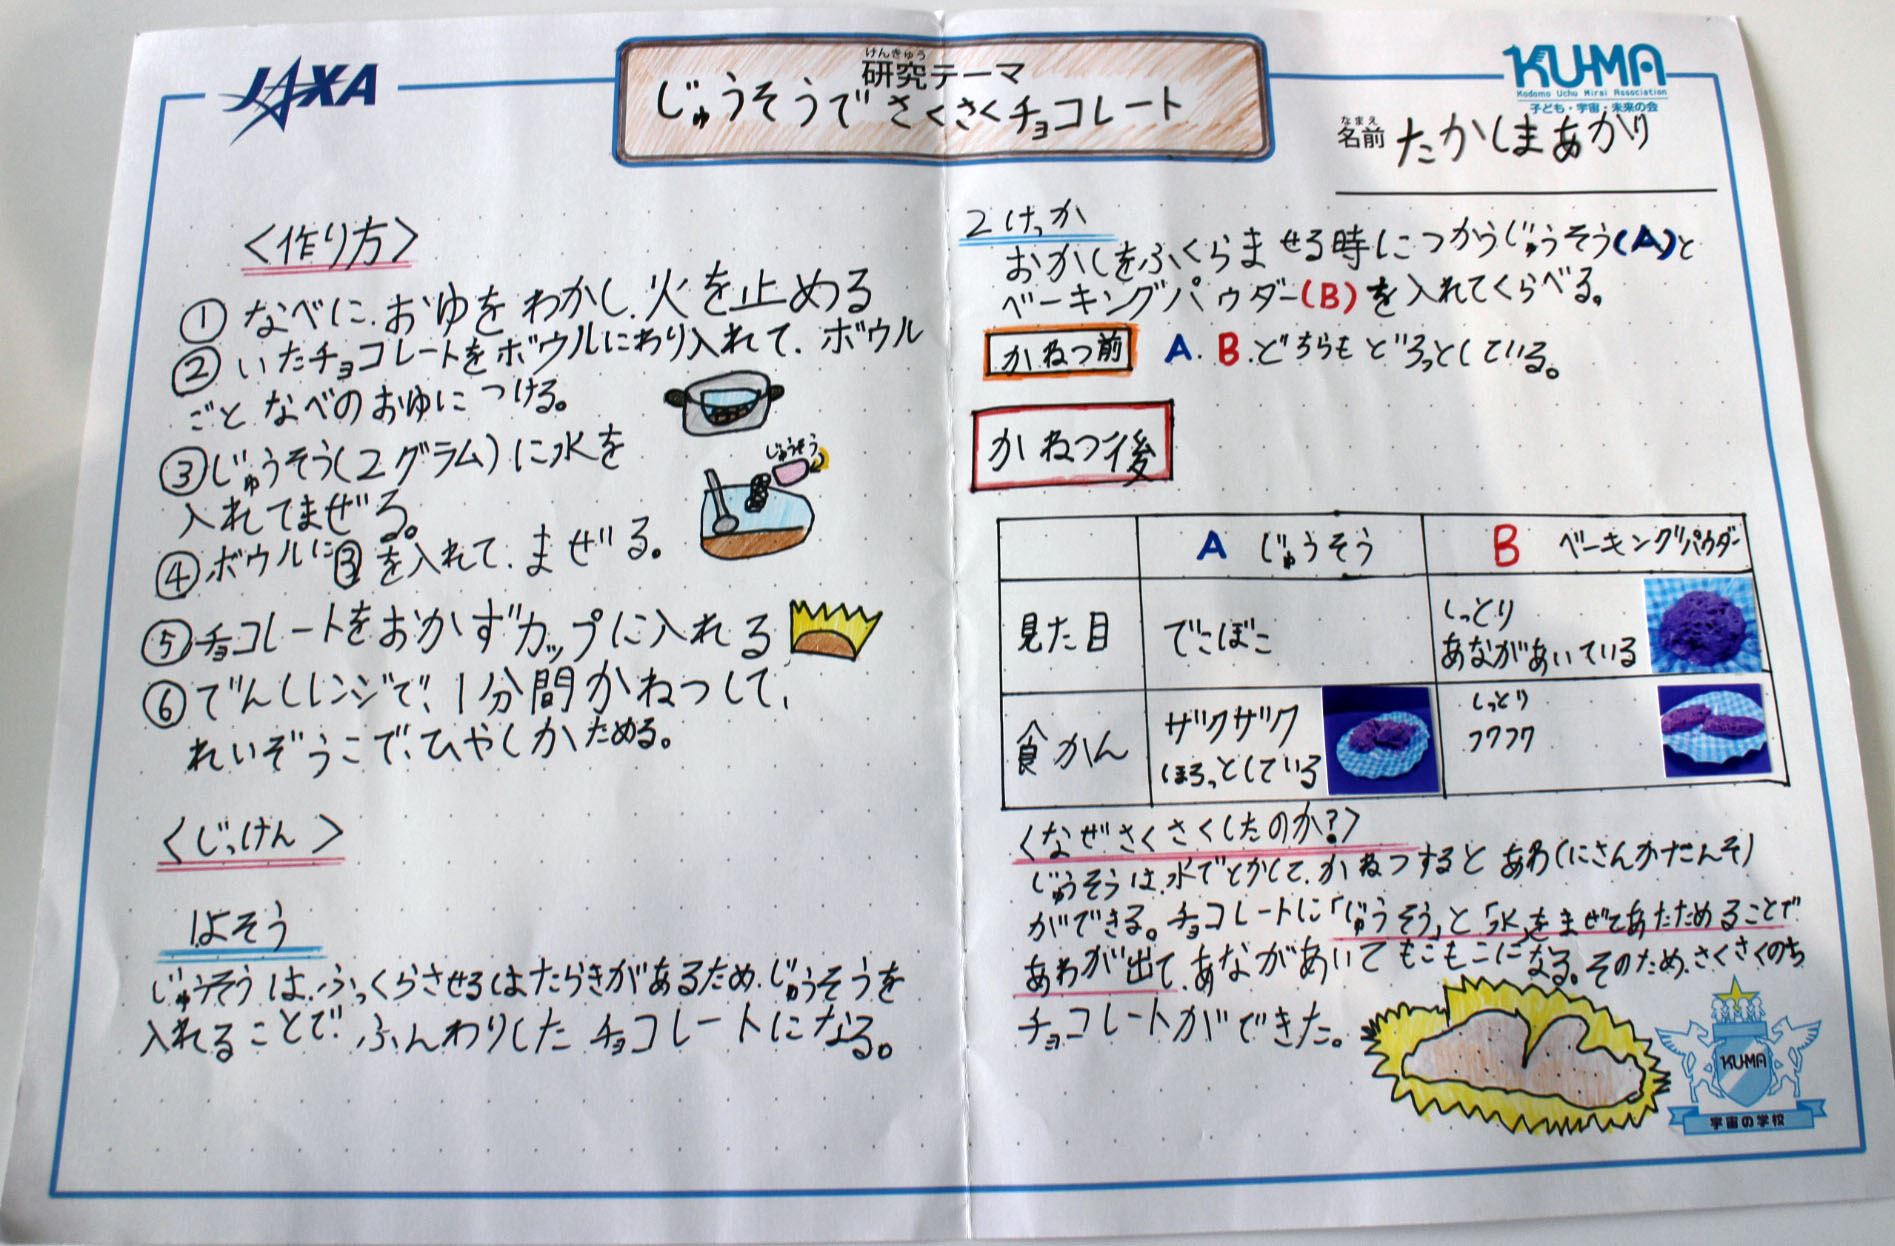 JAXA
けんきゅう
研究テーマ
じゅうそうでさくさくチョコレート
KU-MA
Kodomo Uchu Mirai Association
子ども・宇宙・未来の会
なまえ
名前 たかしまあかり
<作り方>
① なべに、おゆをわかし、火を止める
② いたチョコレートをボウルにわり入れて、ボウル
ごと なべのおゆに つける。
③ じゅうそう(2グラム)に水を
入れてまぜる。
じゅうそう
④ ボウルに③を入れて、まぜる。
⑤ チョコレートをおかずカップに入れる
⑥ でんしレンジで、1分間かねつして、
れいぞうこで、ひやしかためる。
<じっけん>
1よそう
じゅうそうは、ふっくらさせるはたらきがあるため、じゅうそうを
入れることで ふんわりした チョコレートになる。
2けっか
おかしをふくらませる時につかうじゅうそう(A)と
ベーキングパウダー(B)を入れてくらべる。
かねつ前 A.B.どちらもどろっとしている。
かねつ後
A じゅうそう B ベーキングパウダー
見た目 でこぼこ しっとり
あながあいている
食かん ザクザク しっとり
ほろっとしている フワフワ
<なぜさくさくしたのか?>
じゅうそうは、水でとかして、かねつするとあわ(にさんかたんそ)
ができる。チョコレートに「じゅうそう」と「水」をまぜてあたためることで
あわが出て、あながあいてもこもこになる。そのため、さくさくのち
チョコレートができた。
KU-MA
宇宙の学校